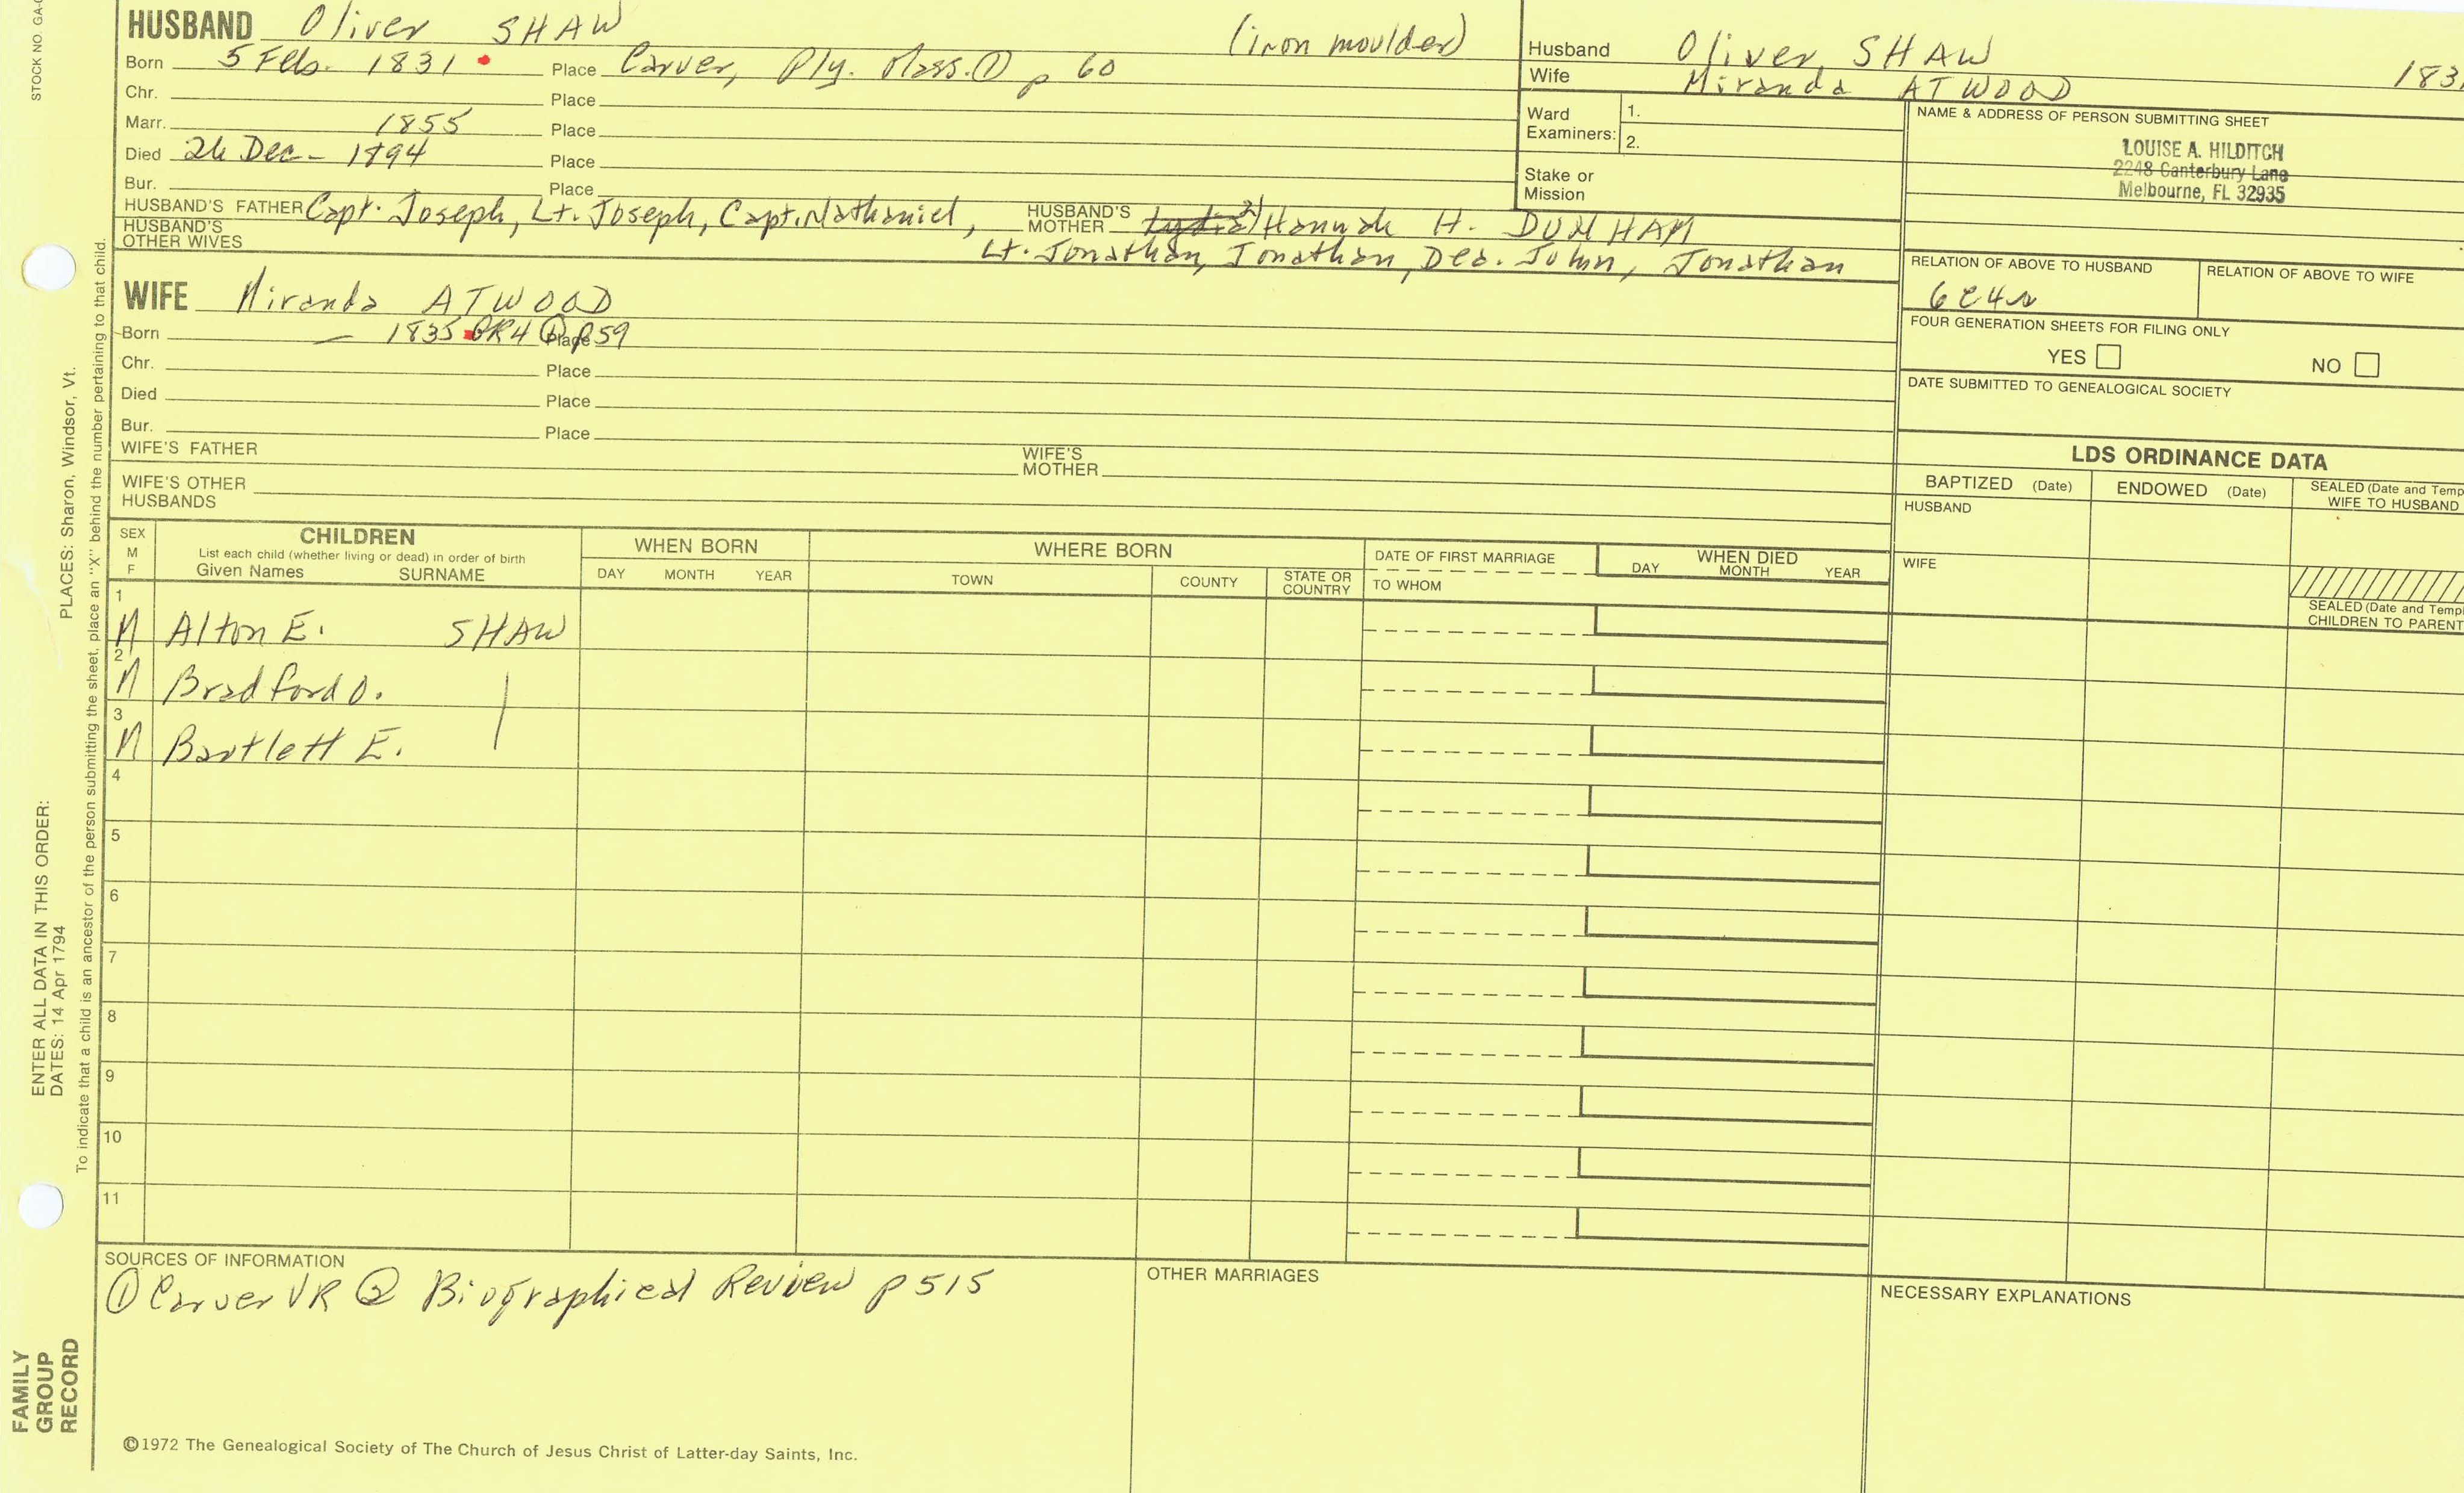 STOCK NO. GA-
HUSBAND Oliver SHAW (iron moulder)
Born 5 Feb. 1831 Place Carver, Ply. Mass. ① p 60
Chr. Place
Marr. 1855 Place
Died 26 Dec - 1894 Place
Bur. Place
HUSBAND'S FATHER Capt. Joseph, Lt. Joseph, Capt. Nathaniel, HUSBAND'S MOTHER 2) Hannah H. DUNHAM
HUSBAND'S OTHER WIVES Lt. Jonathan, Jonathan, Dea. John, Jonathan
WIFE Miranda ATWOOD
Born — 1835 GR4 ① p59 Place
Chr. Place
Died Place
Bur. Place
WIFE'S FATHER WIFE'S MOTHER
WIFE'S OTHER HUSBANDS
Husband Oliver SHAW 183
Wife Miranda ATWOOD
Ward Examiners: 1.
2.
Stake or Mission
NAME & ADDRESS OF PERSON SUBMITTING SHEET
LOUISE A. HILDITCH
2248 Canterbury Lane
Melbourne, FL 32935
RELATION OF ABOVE TO HUSBAND RELATION OF ABOVE TO WIFE
6C4R
FOUR GENERATION SHEETS FOR FILING ONLY
YES NO
DATE SUBMITTED TO GENEALOGICAL SOCIETY
LDS ORDINANCE DATA
BAPTIZED (Date) ENDOWED (Date) SEALED (Date and Temp
WIFE TO HUSBAND
HUSBAND
WIFE
SEALED (Date and Templ
CHILDREN TO PARENT
SEX M F
CHILDREN
List each child (whether living or dead) in order of birth
Given Names SURNAME
WHEN BORN
DAY MONTH YEAR
WHERE BORN
TOWN COUNTY STATE OR COUNTRY
DATE OF FIRST MARRIAGE
TO WHOM
WHEN DIED
DAY MONTH YEAR
1
M Alton E. SHAW
2
M Bradford O. |
3
M Bartlett E.
4
5
6
7
8
9
10
11
SOURCES OF INFORMATION
① Carver VR ② Biographical Review p 515
OTHER MARRIAGES
NECESSARY EXPLANATIONS
©1972 The Genealogical Society of The Church of Jesus Christ of Latter-day Saints, Inc.
PLACES: Sharon, Windsor, Vt.
ENTER ALL DATA IN THIS ORDER:
DATES: 14 Apr 1794
To indicate that a child is an ancestor of the person submitting the sheet, place an "X" behind the number pertaining to that child.
FAMILY
GROUP
RECORD